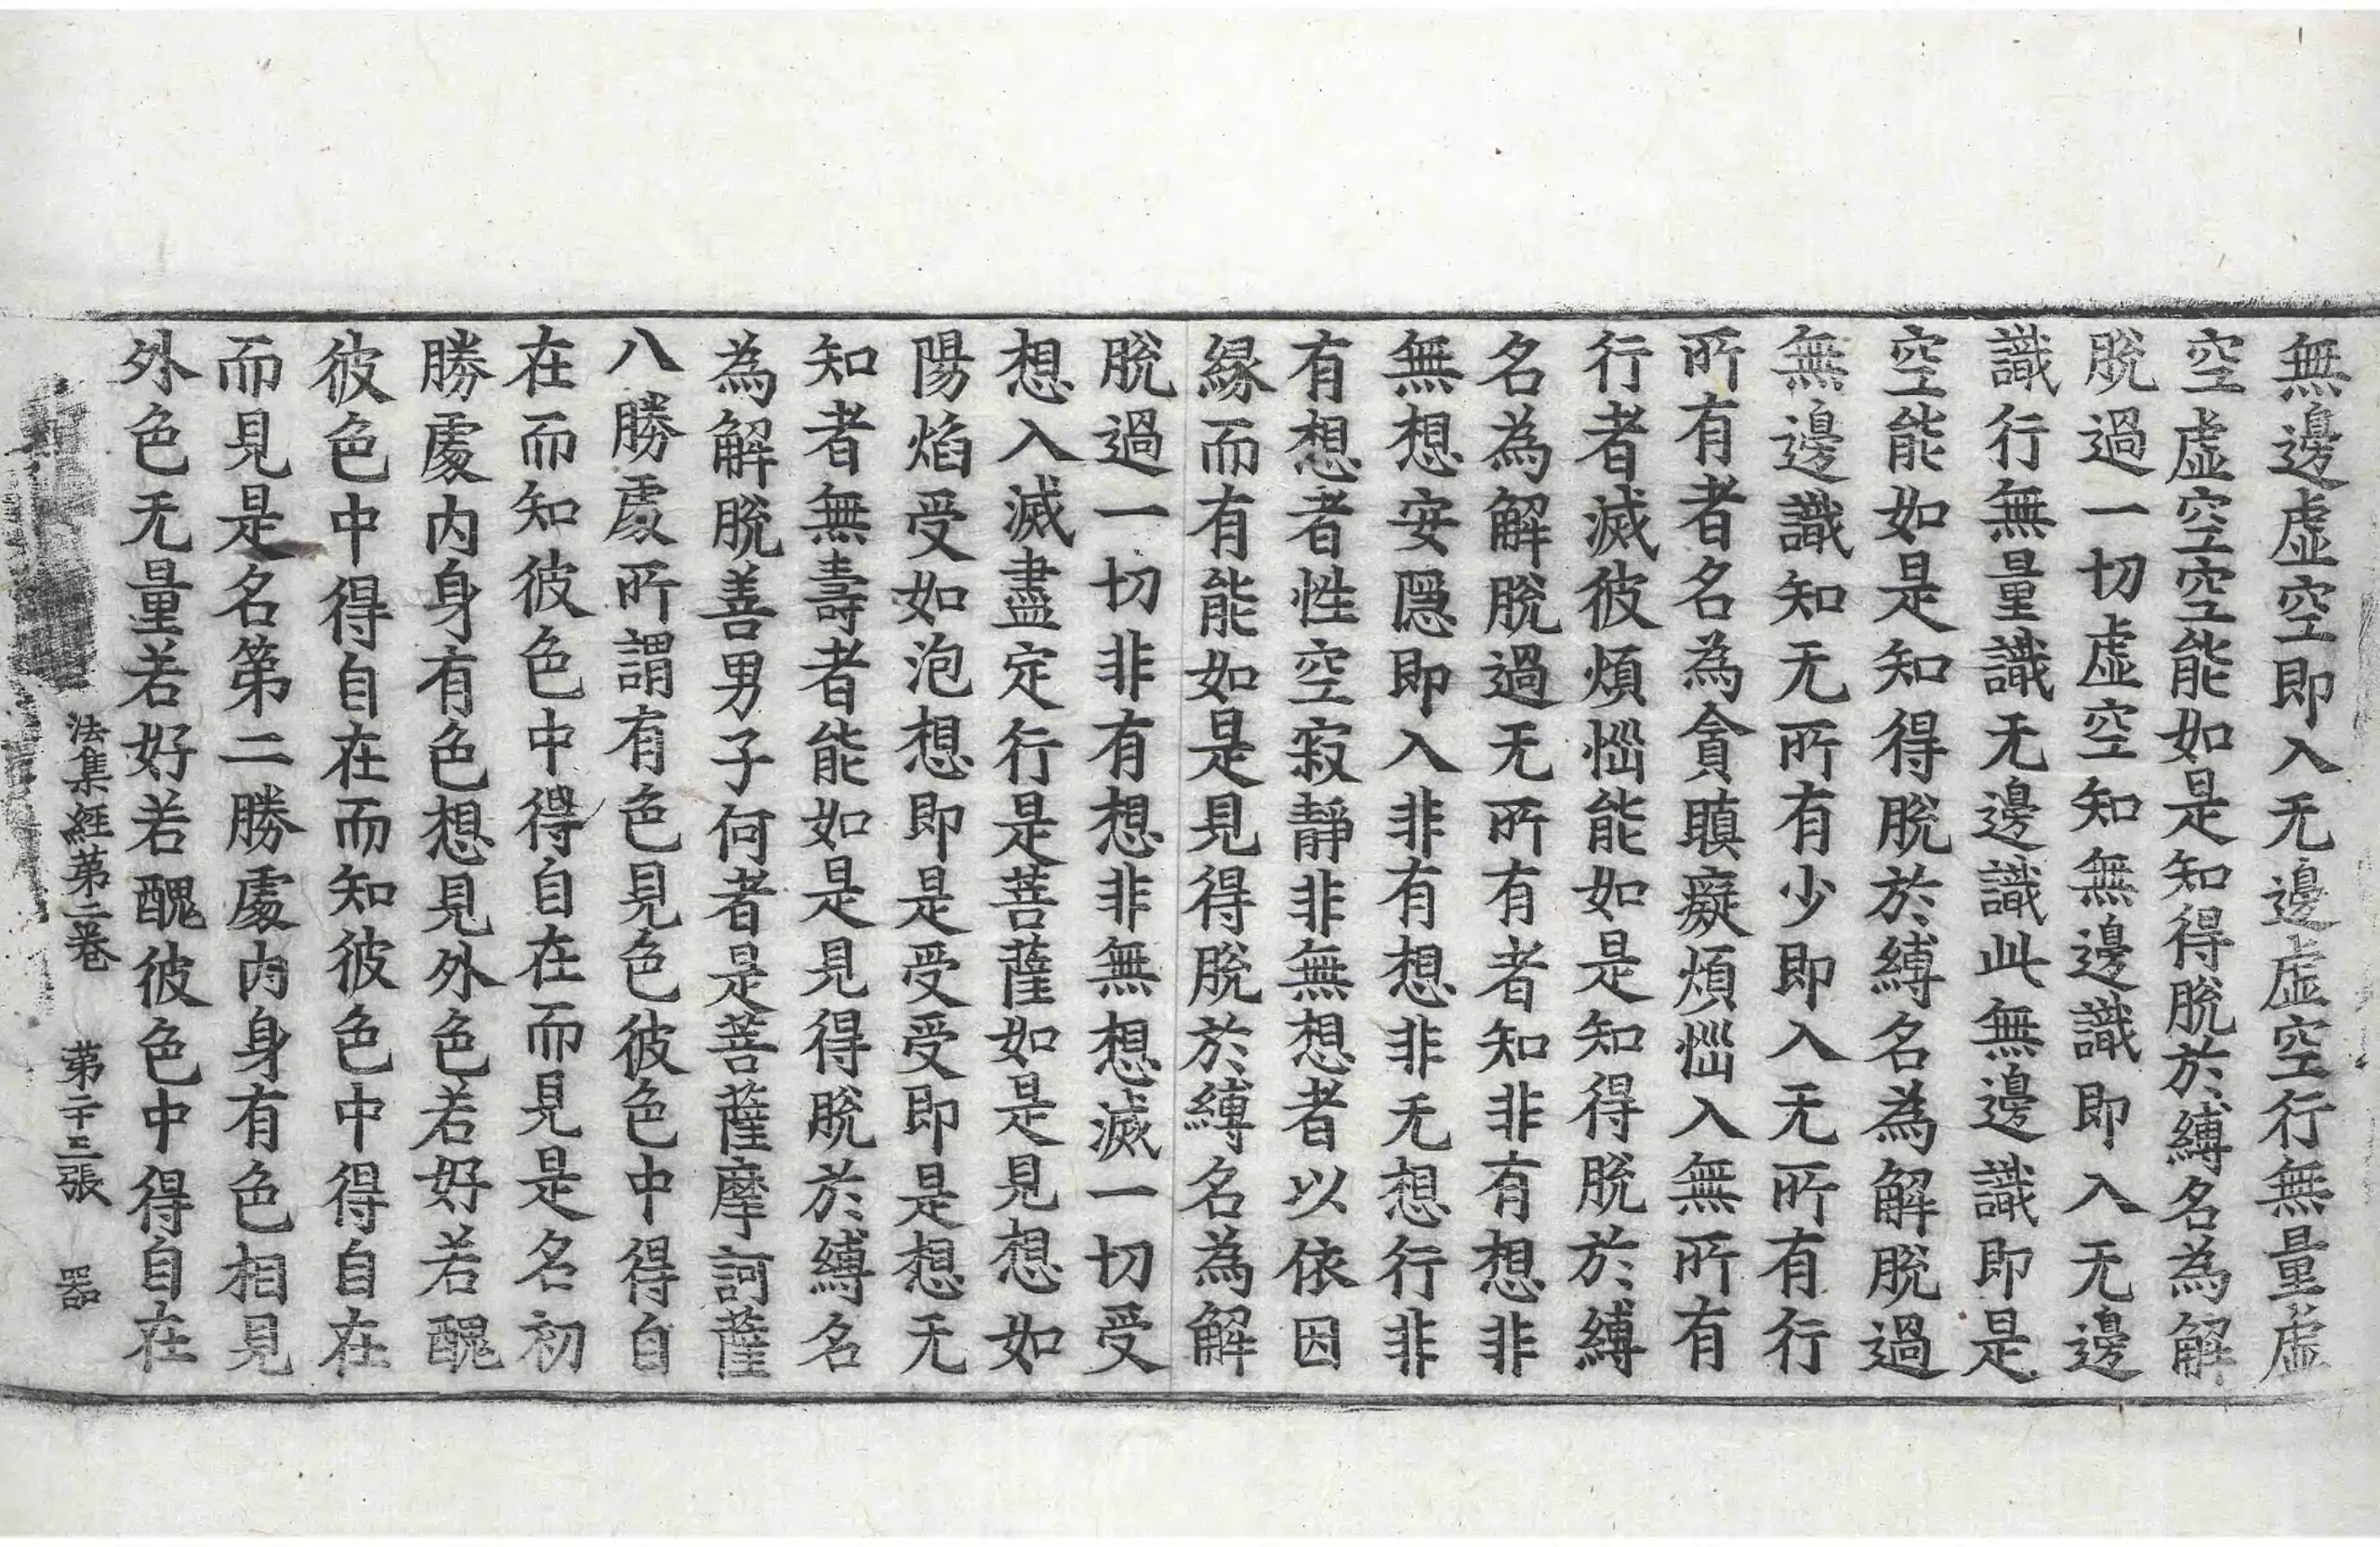 無邊虛空即入无邊虛空行無量虛
空虛空空能如是知得脫於縛名為解
脫過一切虛空知無邊識即入无邊
識行無量識无邊識此無邊識即是
空能如是知得脫於縛名為解脫過
無邊識知无所有少即入无所有行
所有者名為貪瞋癡煩惱入無所有
行者滅彼煩惱能如是知得脫於縛
名為解脫過无所有者知非有想非
無想安隱即入非有想非无想行非
有想者性空寂靜非無想者以依因
緣而有能如是見得脫於縛名為解
脫過一切非有想非無想滅一切受
想入滅盡定行是菩薩如是見想如
陽焰受如泡想即是受受即是想无
知者無壽者能如是見得脫於縛名
為解脫善男子何者是菩薩摩訶薩
八勝處所謂有色見色彼色中得自
在而知彼色中得自在而見是名初
勝處內身有色想見外色若好若醜
彼色中得自在而知彼色中得自在
而見是名第二勝處內身有色相見
外色无量若好若醜彼色中得自在
法集經第二卷 第二十三張 器